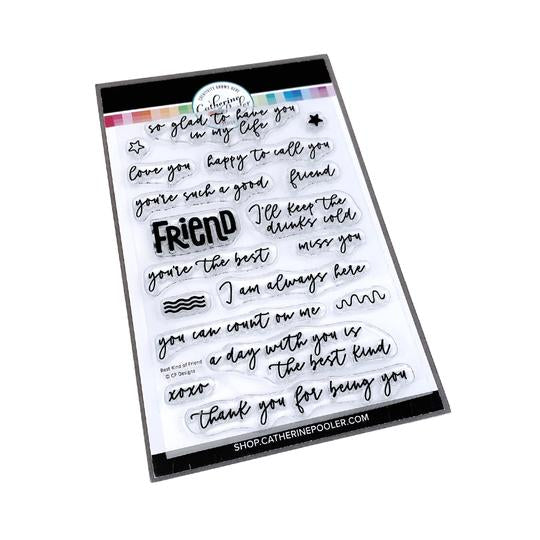 CREATIVITY GROWS HERE
Catherine
Pooler
so glad to have you
in my life
love you
happy to call you
you're such a good
friend
FRIEND
I'll keep the
drinks cold
you're the best
miss you
I am always here
you can count on me
a day with you is
the best kind
Best Kind of Friend
© CP Designs
xoxo
thank you for being you
SHOP.CATHERINEPOOLER.COM